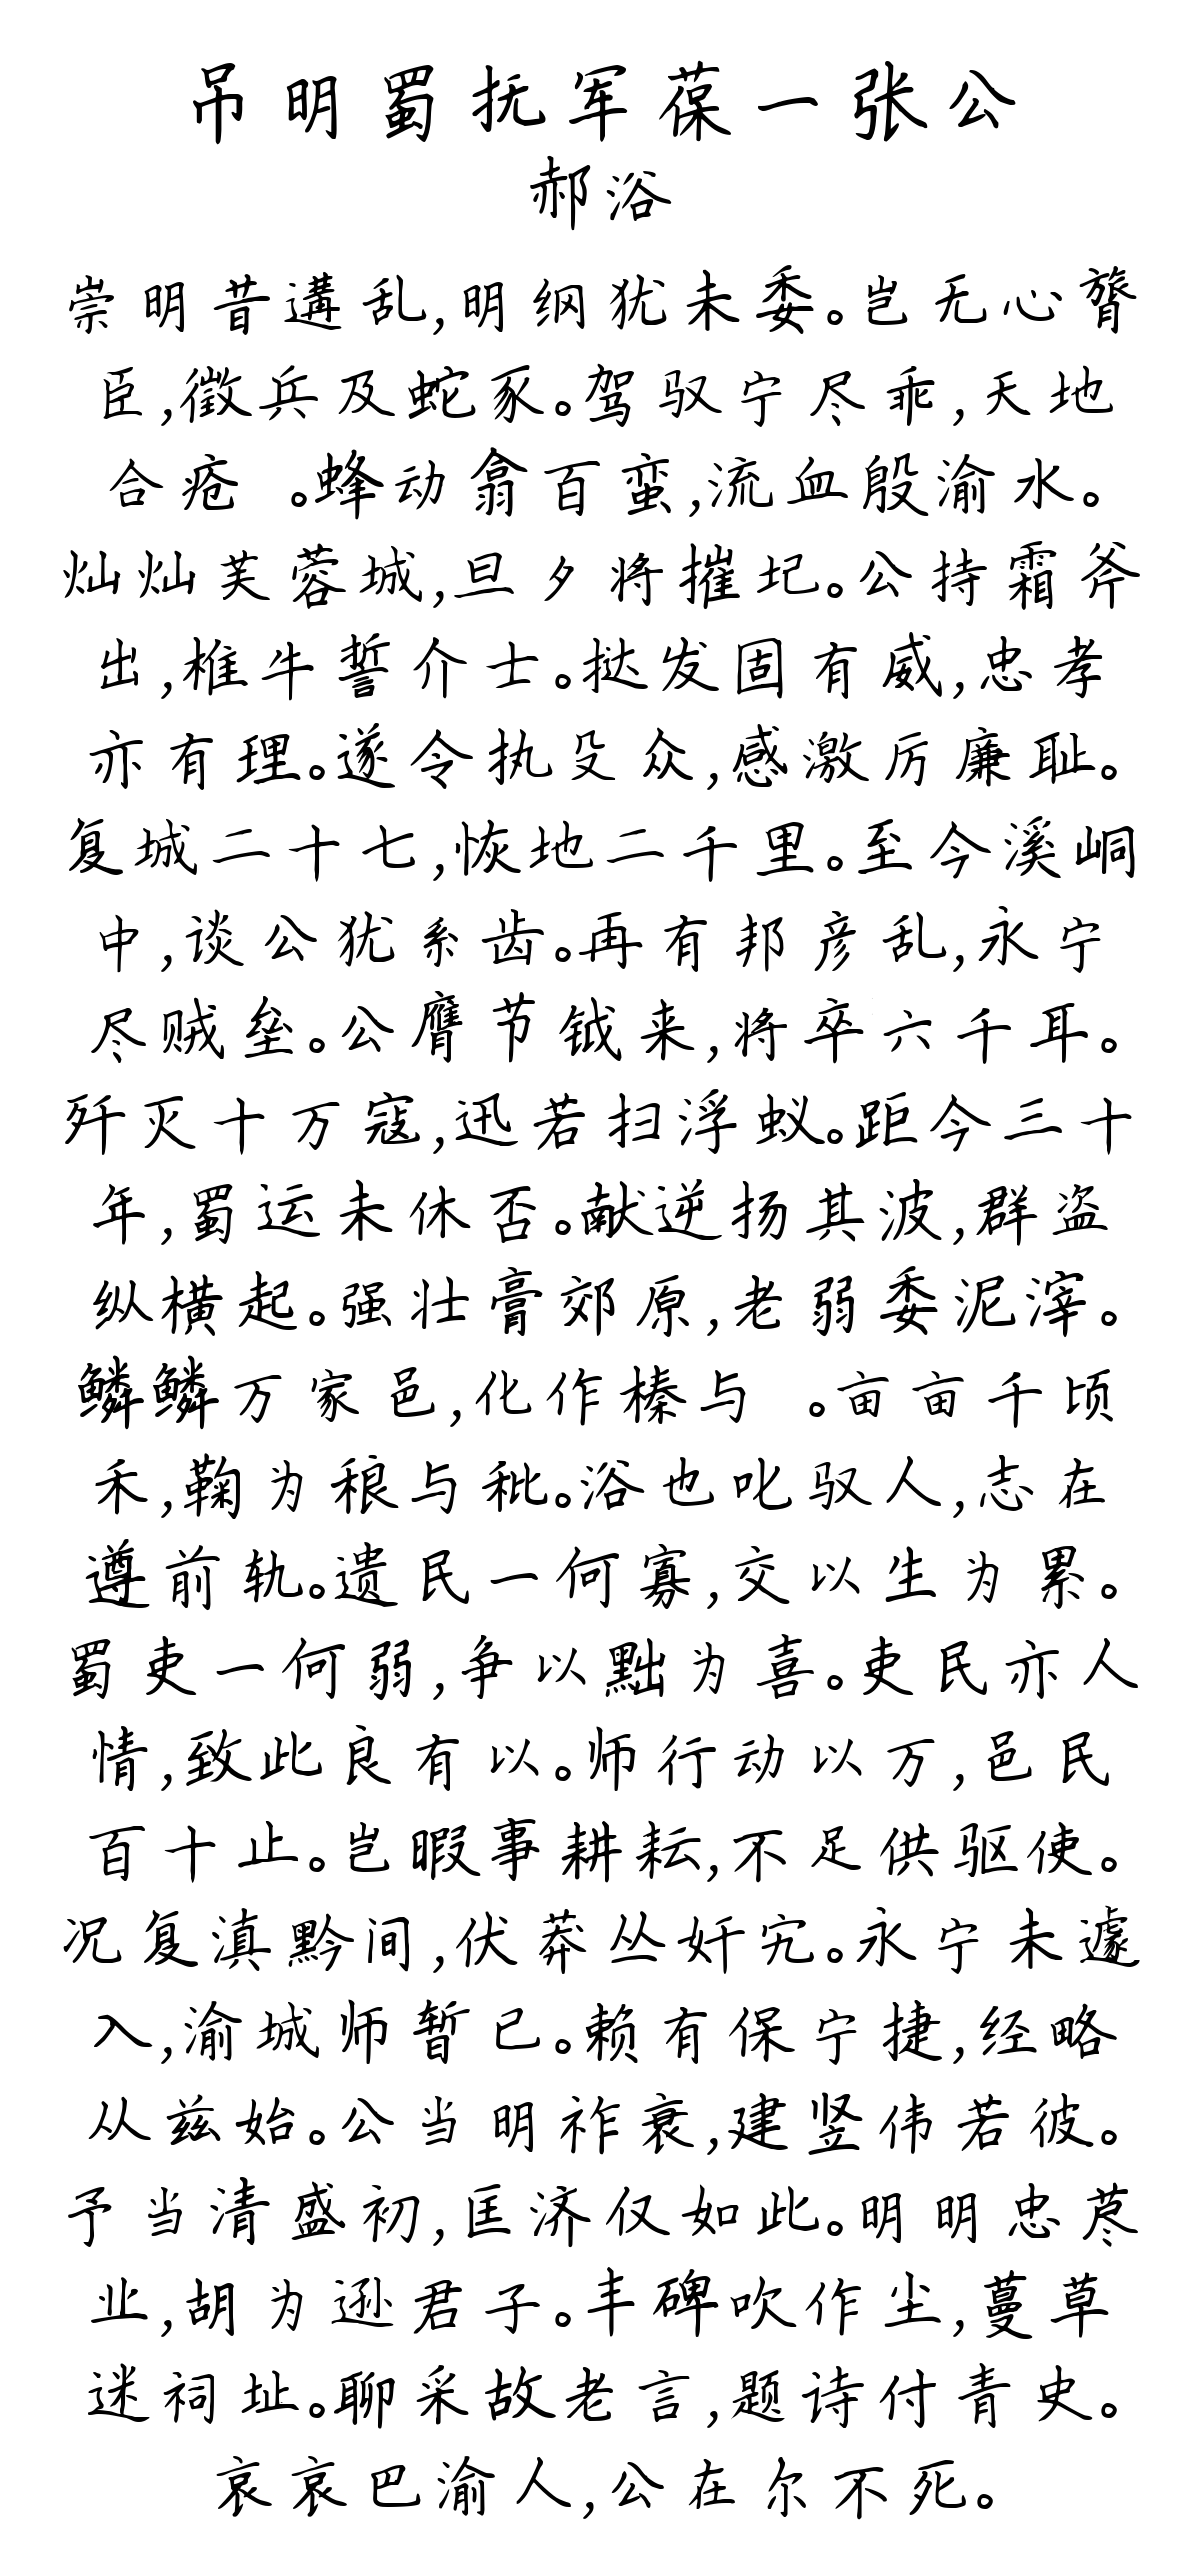 吊明蜀抚军葆一张公
郝浴
崇明昔遘乱,明纲犹未委。岂无心膂
臣,徵兵及蛇豕。驾驭宁尽乖,天地
合疮 。蜂动翕百蛮,流血殷渝水。
灿灿芙蓉城,旦夕将摧圮。公持霜斧
出,椎牛誓介士。挞发固有威,忠孝
亦有理。遂令执殳众,感激厉廉耻。
复城二十七,恢地二千里。至今溪峒
中,谈公犹系齿。再有邦彦乱,永宁
尽贼垒。公膺节钺来,将卒六千耳。
歼灭十万寇,迅若扫浮蚁。距今三十
年,蜀运未休否。献逆扬其波,群盗
纵横起。强壮膏郊原,老弱委泥滓。
鳞鳞万家邑,化作榛与 。亩亩千顷
禾,鞠为稂与秕。浴也叱驭人,志在
遵前轨。遗民一何寡,交以生为累。
蜀吏一何弱,争以黜为喜。吏民亦人
情,致此良有以。师行动以万,邑民
百十止。岂暇事耕耘,不足供驱使。
况复滇黔间,伏莽丛奸宄。永宁未遽
入,渝城师暂已。赖有保宁捷,经略
从兹始。公当明祚衰,建竖伟若彼。
予当清盛初,匡济仅如此。明明忠荩
业,胡为逊君子。丰碑吹作尘,蔓草
迷祠址。聊采故老言,题诗付青史。
哀哀巴渝人,公在尔不死。